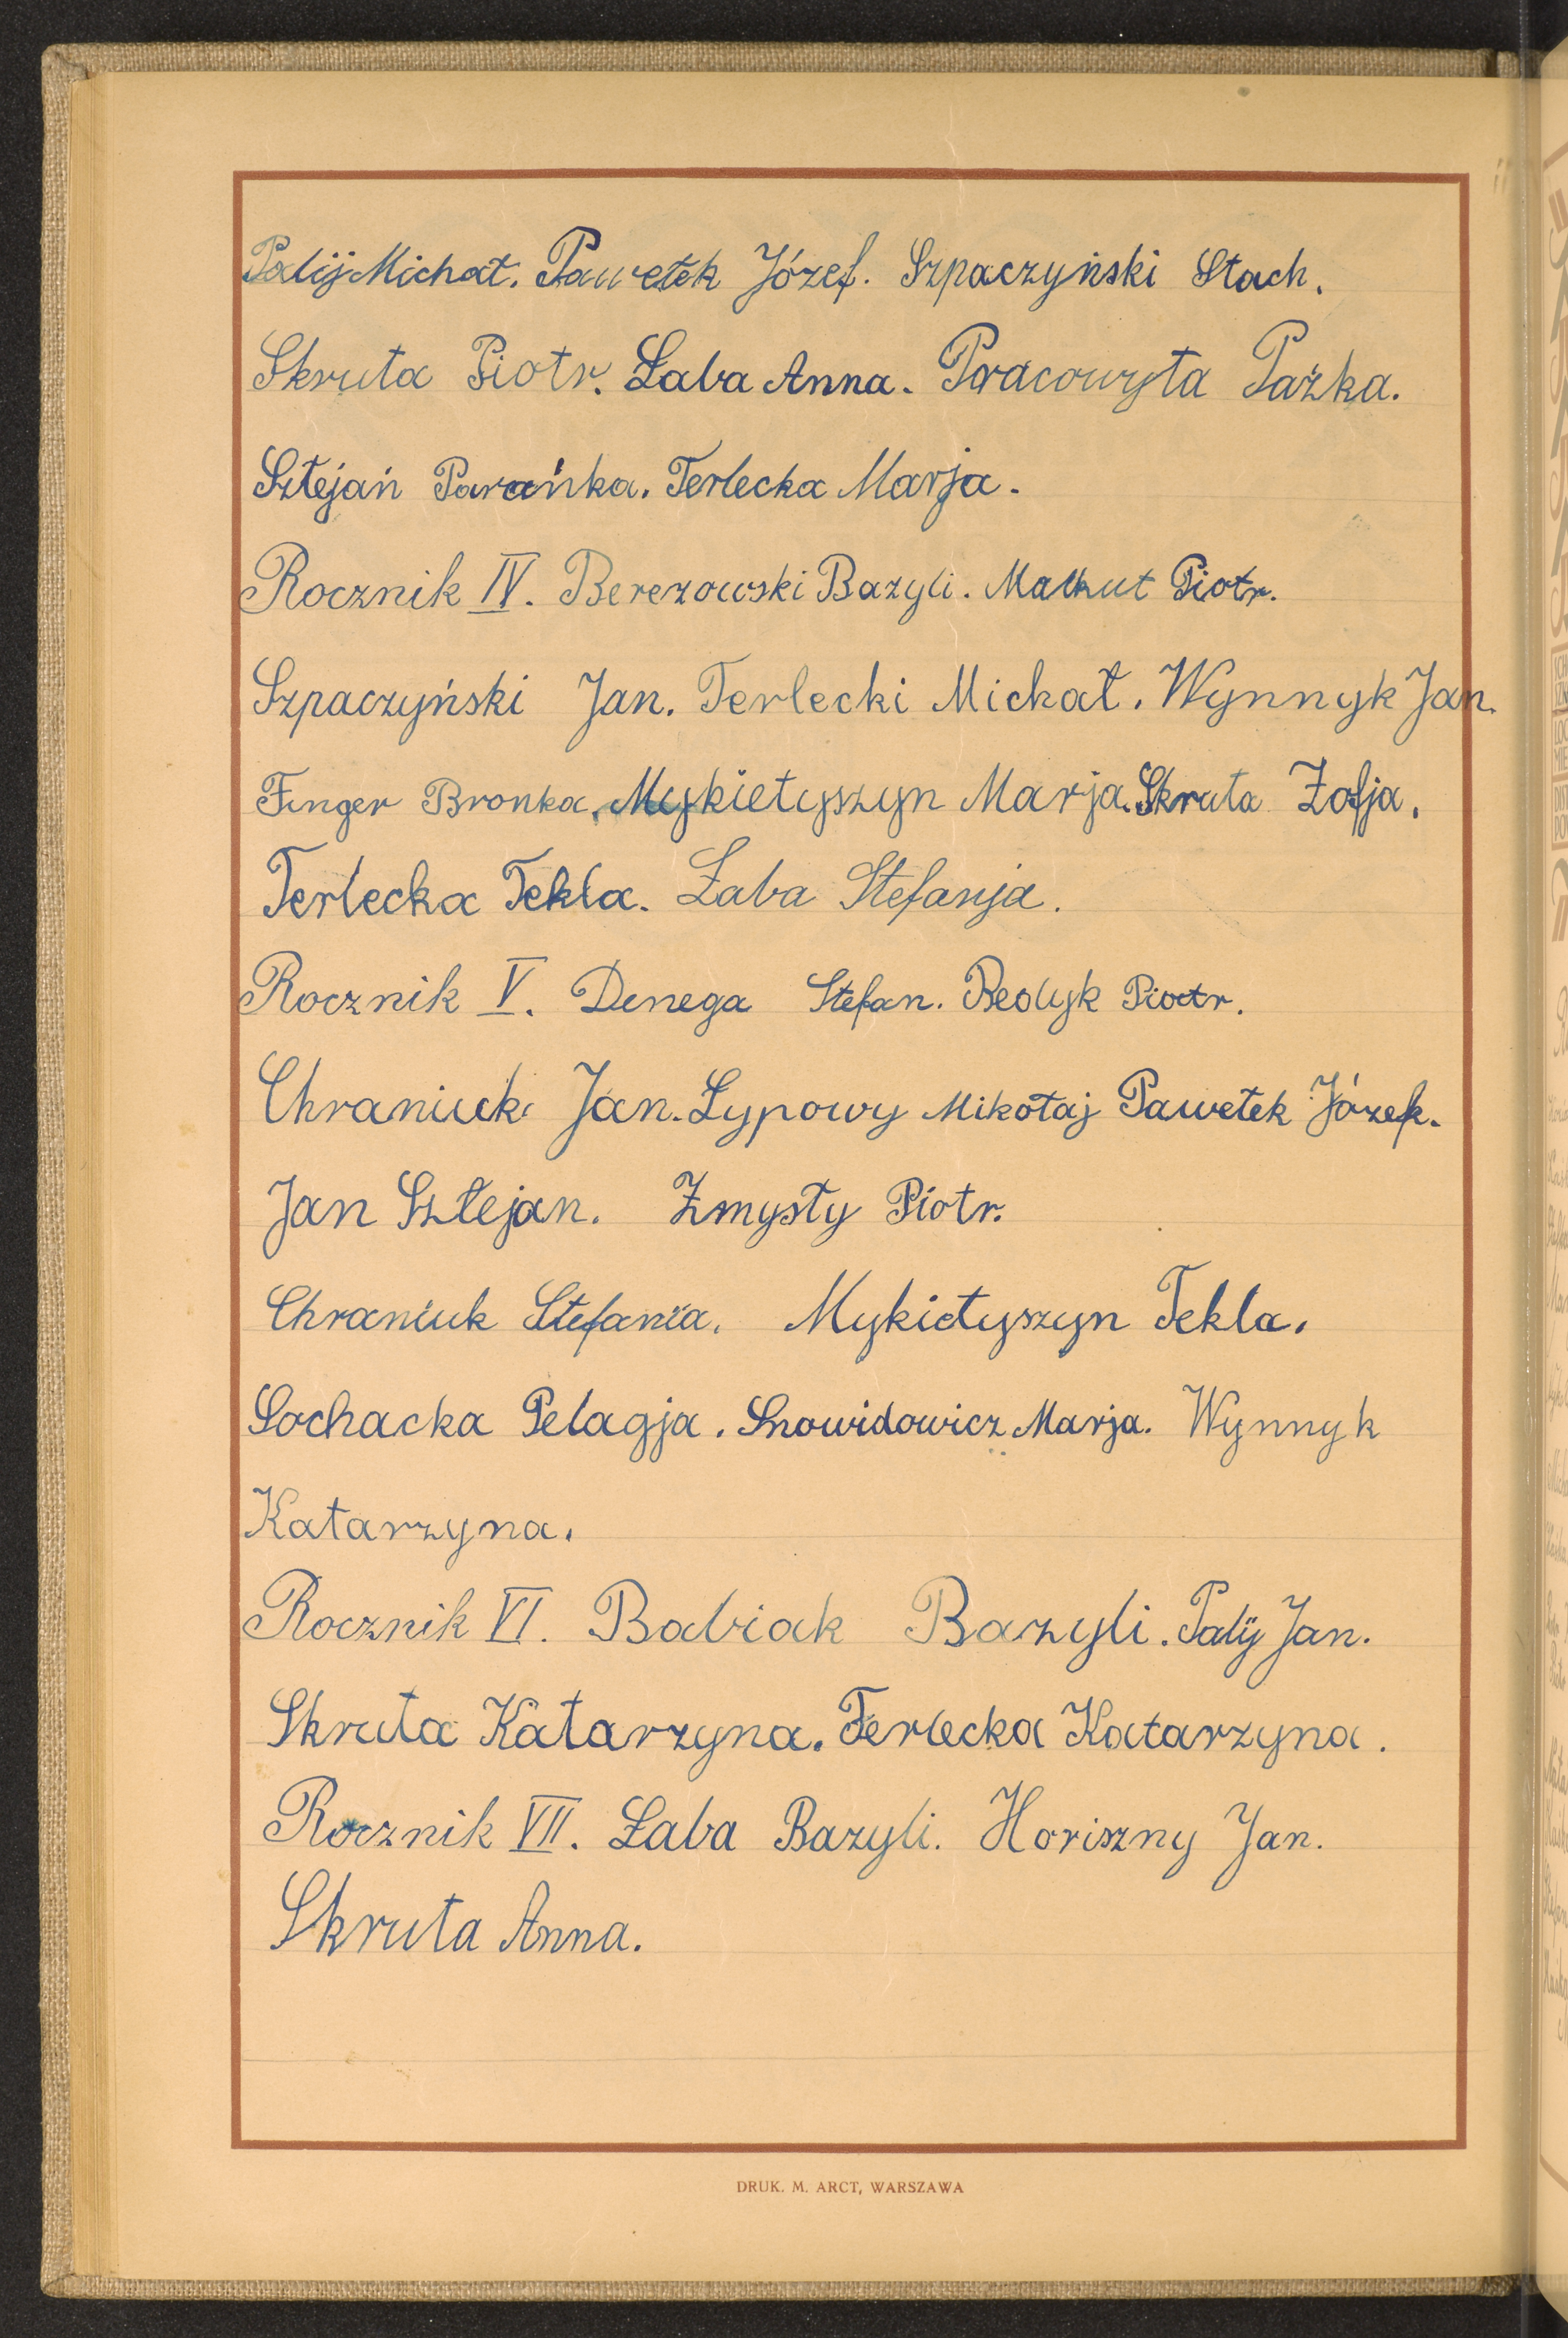 Palij Michał. Pawełek Józef. Szpaczyński Stach.
Skruta Piotr. Łaba Anna. Pracowyta Pażka.
Sztejań Parańka. Terlecka Marja.
Rocznik IV. Berezowski Bazyli. Małkut Piotr.
Szpaczyński Jan. Terlecki Michał. Wynnyk Jan.
Finger Bronka. Mykietyszyn Marja. Skruta Zofja.
Terlecka Tekla. Łaba Stefanja.
Rocznik V. Denega Stefan. Redyk Piotr.
Chraniuk Jan. Łypowy Mikołaj Pawełek Józef.
Jan Sztejan. Zmysły Piotr.
Chraniuk Stefania. Mykietyszyn Tekla.
Sochacka Pelagja. Snowidowicz Marja. Wynnyk
Katarzyna.
Rocznik VI. Babiak Bazyli. Palij Jan.
Skruta Katarzyna. Terlecka Katarzyna.
Rocznik VII. Łaba Bazyli. Horiszny Jan.
Skruta Anna.
DRUK. M. ARCT, WARSZAWA